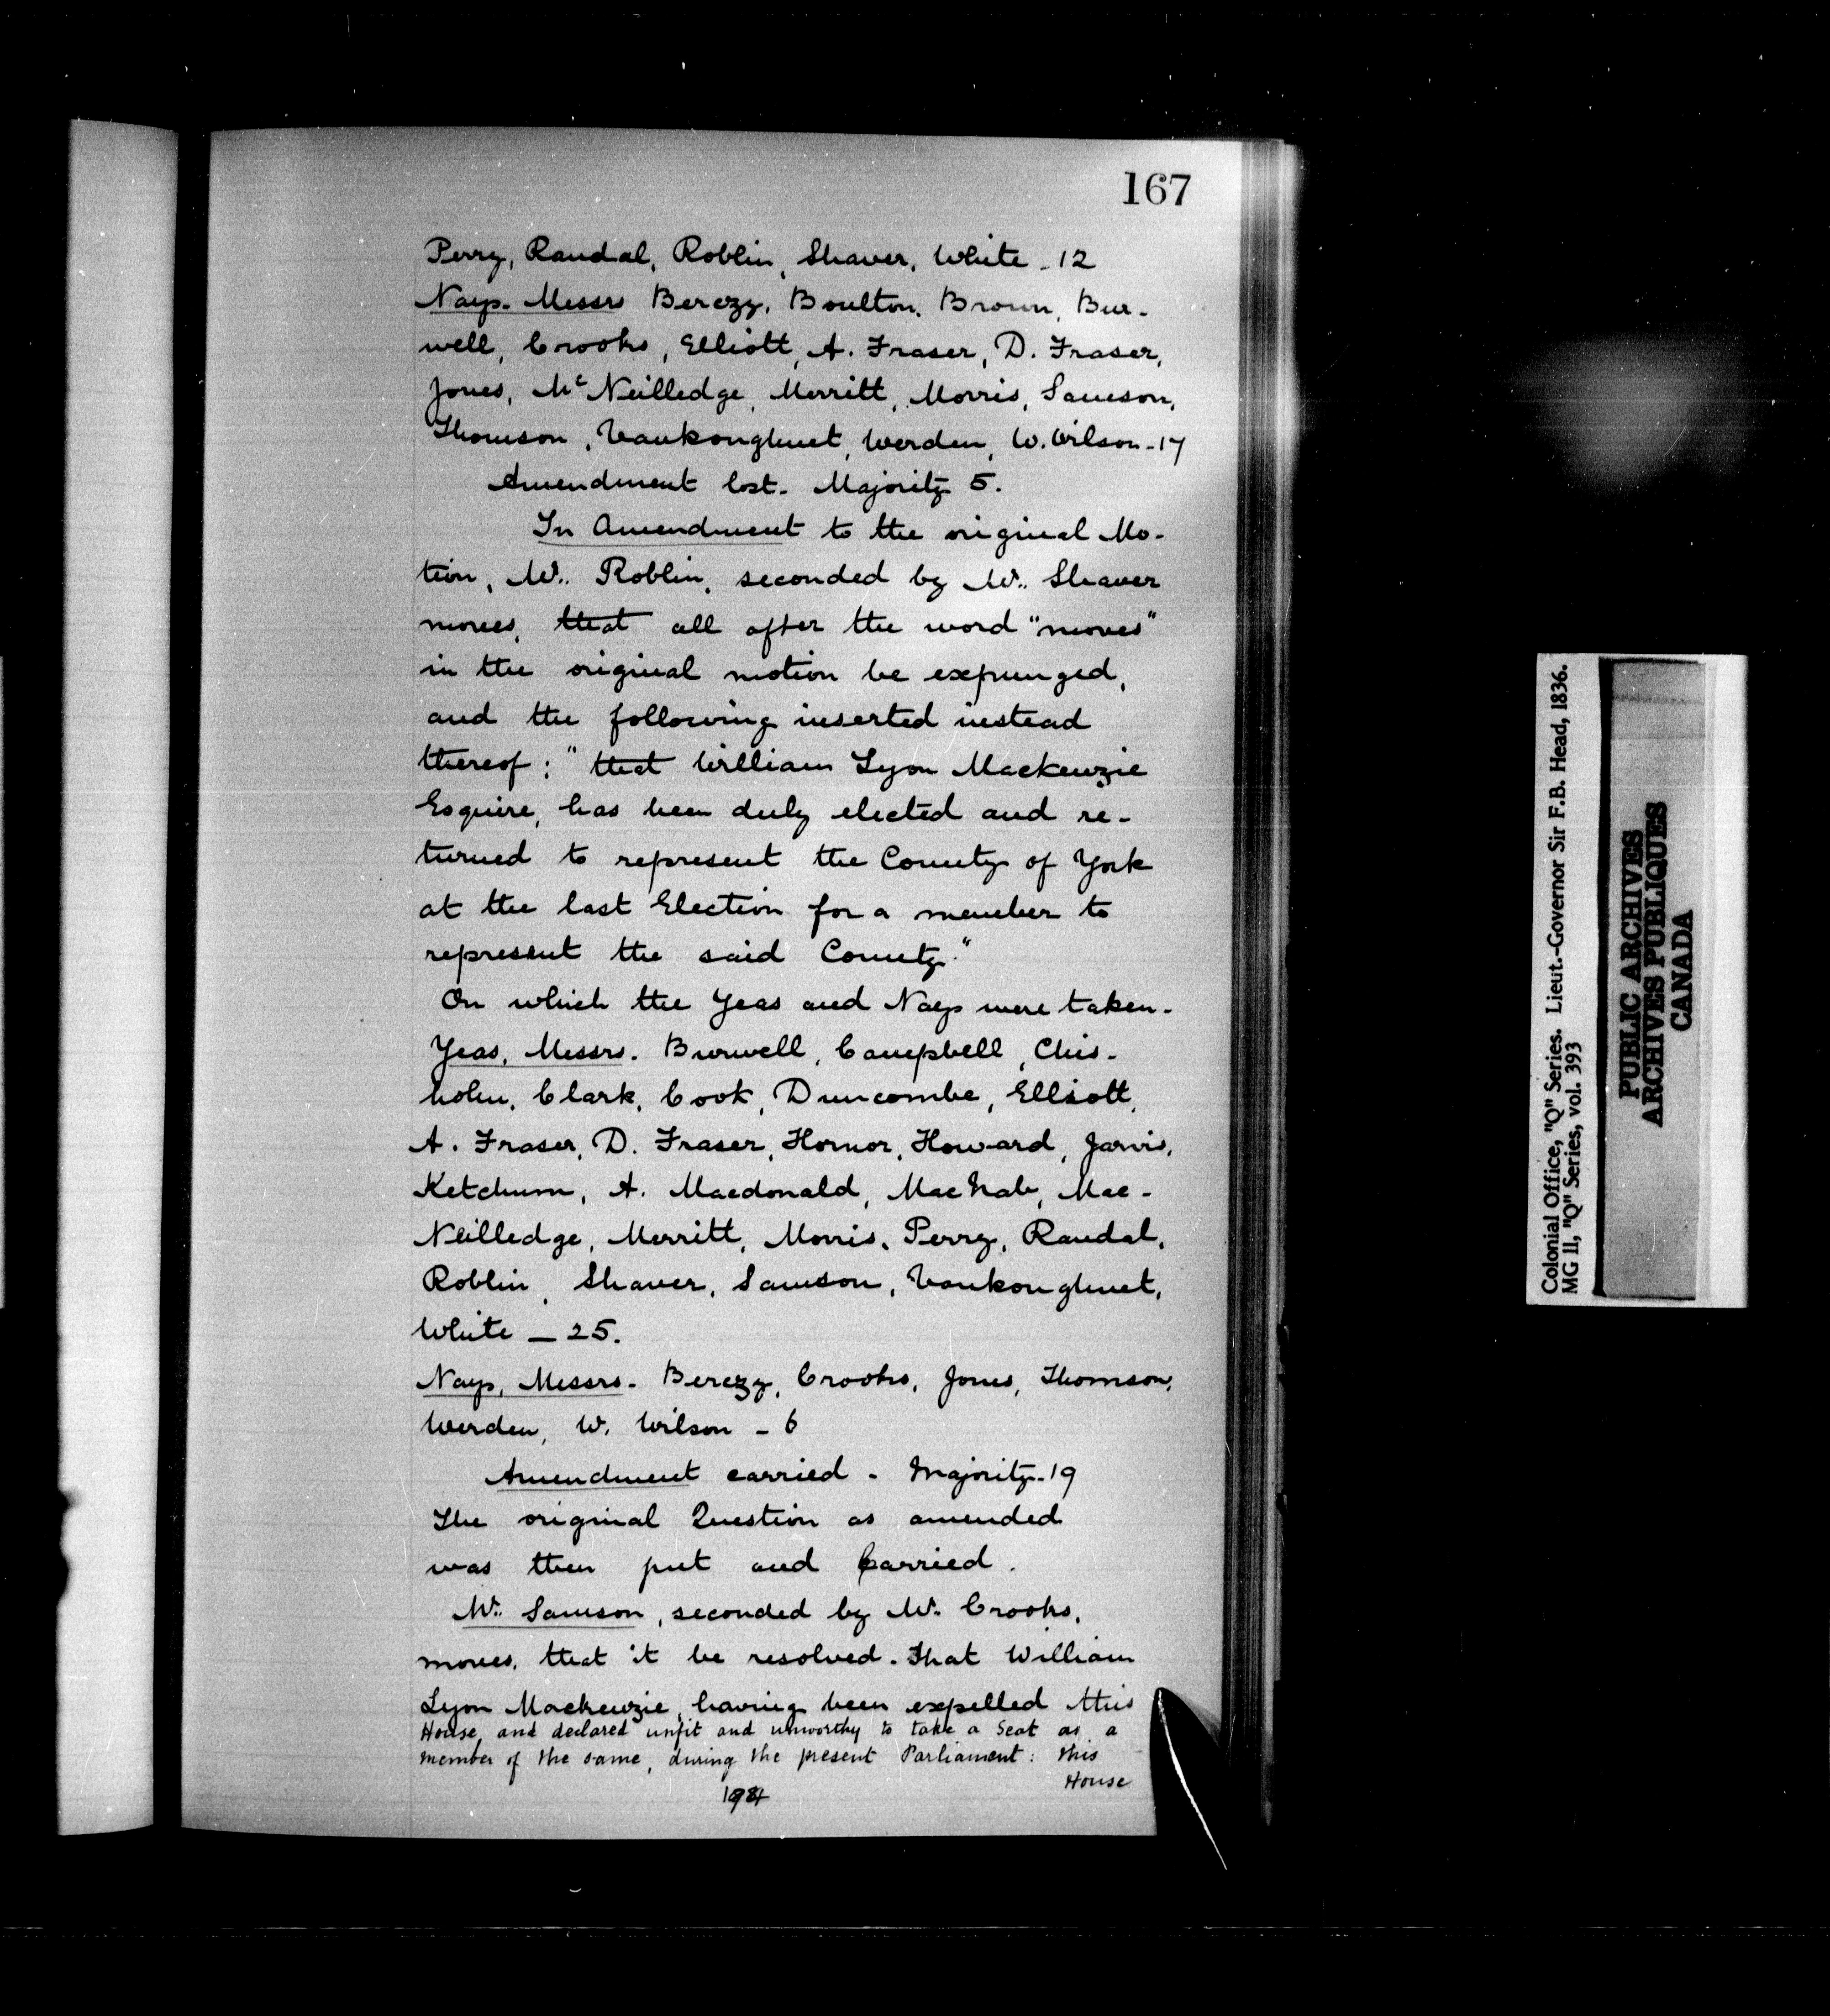 167
Perry, Randal, Roblin, Shaver, White - 12
Nays. Messrs Berczy, Boulton, Brown, Bur-
well, Crooks, Elliott, A. Fraser, D. Fraser,
Jones, McNeilledge, Merritt, Morris, Samson,
Thomson, Vankoughnet, Werden, W. Wilson - 17
Amendment lost. Majority 5.
In Amendment to the original Mo-
tion, Mr. Roblin, seconded by Mr. Shaver
moves, that all after the word "moves"
in the original motion be expunged,
and the following inserted instead
thereof: "that William Lyon Mackenzie
Esquire, has been duly elected and re-
turned to represent the County of York
at the last Election for a member to
represent the said County."
On which the Yeas and Nays were taken.
Yeas, Messrs. Burwell, Campbell, Chis-
holm, Clark, Cook, Duncombe, Elliott,
A. Fraser, D. Fraser, Hornor, Howard, Jarvis,
Ketchum, A. Macdonald, MacNab, Mac-
Neilledge, Merritt, Morris, Perry, Randal,
Roblin, Shaver, Samson, Vankoughnet,
White - 25.
Nays, Messrs. Berczy, Crooks, Jones, Thomson,
Werden, W. Wilson - 6
Amendment carried. Majority - 19
The original Question as amended
was then put and Carried.
Mr. Samson, seconded by Mr. Crooks,
moves, that it be resolved. That William
Lyon Mackenzie, having been expelled this
House, and declared unfit and unworthy to take a Seat as a
member of the same, during the present Parliament: this
House
Colonial Office, "Q" Series. Lieut.-Governor Sir F.B. Head, 1836.
MG 11, "Q" Series, vol. 393
PUBLIC ARCHIVES
ARCHIVES PUBLIQUES
CANADA